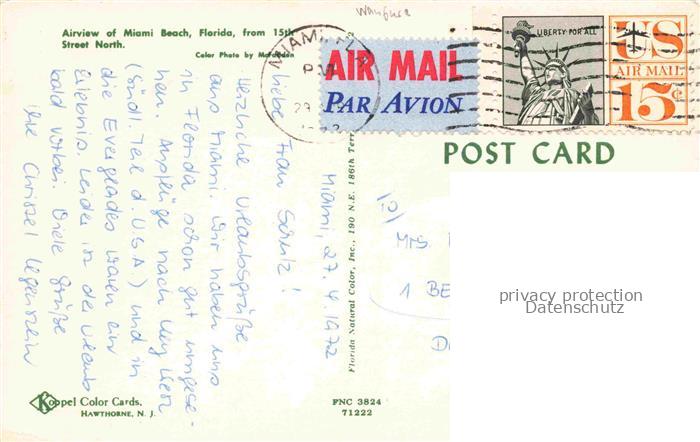 Airview of Miami Beach, Florida, from 15th
Street North.
Color Photo by
MIAMI, FLA
PM
AIR MAIL
PAR AVION
LIBERTY FOR ALL
US
AIR MAIL
15c
POST CARD
Miami, 27.4.1972
Liebe Frau Schulz!
Herzliche Urlaubsgrüße
aus Miami. Wir haben uns
in Florida schon gut umgese-
hen. Ausflüge nach Key West
(südl. Teil d. U.S.A.) und in
die Everglades waren ein
Erlebnis. Leider ist der Urlaub
bald vorbei. Viele Grüße
Ihre Christel
Florida Natural Color, Inc., 190 N.E. 186th Terr
Mrs.
1 BE
privacy protection
Datenschutz
Koppel Color Cards.
HAWTHORNE, N. J.
FNC 3824
71222